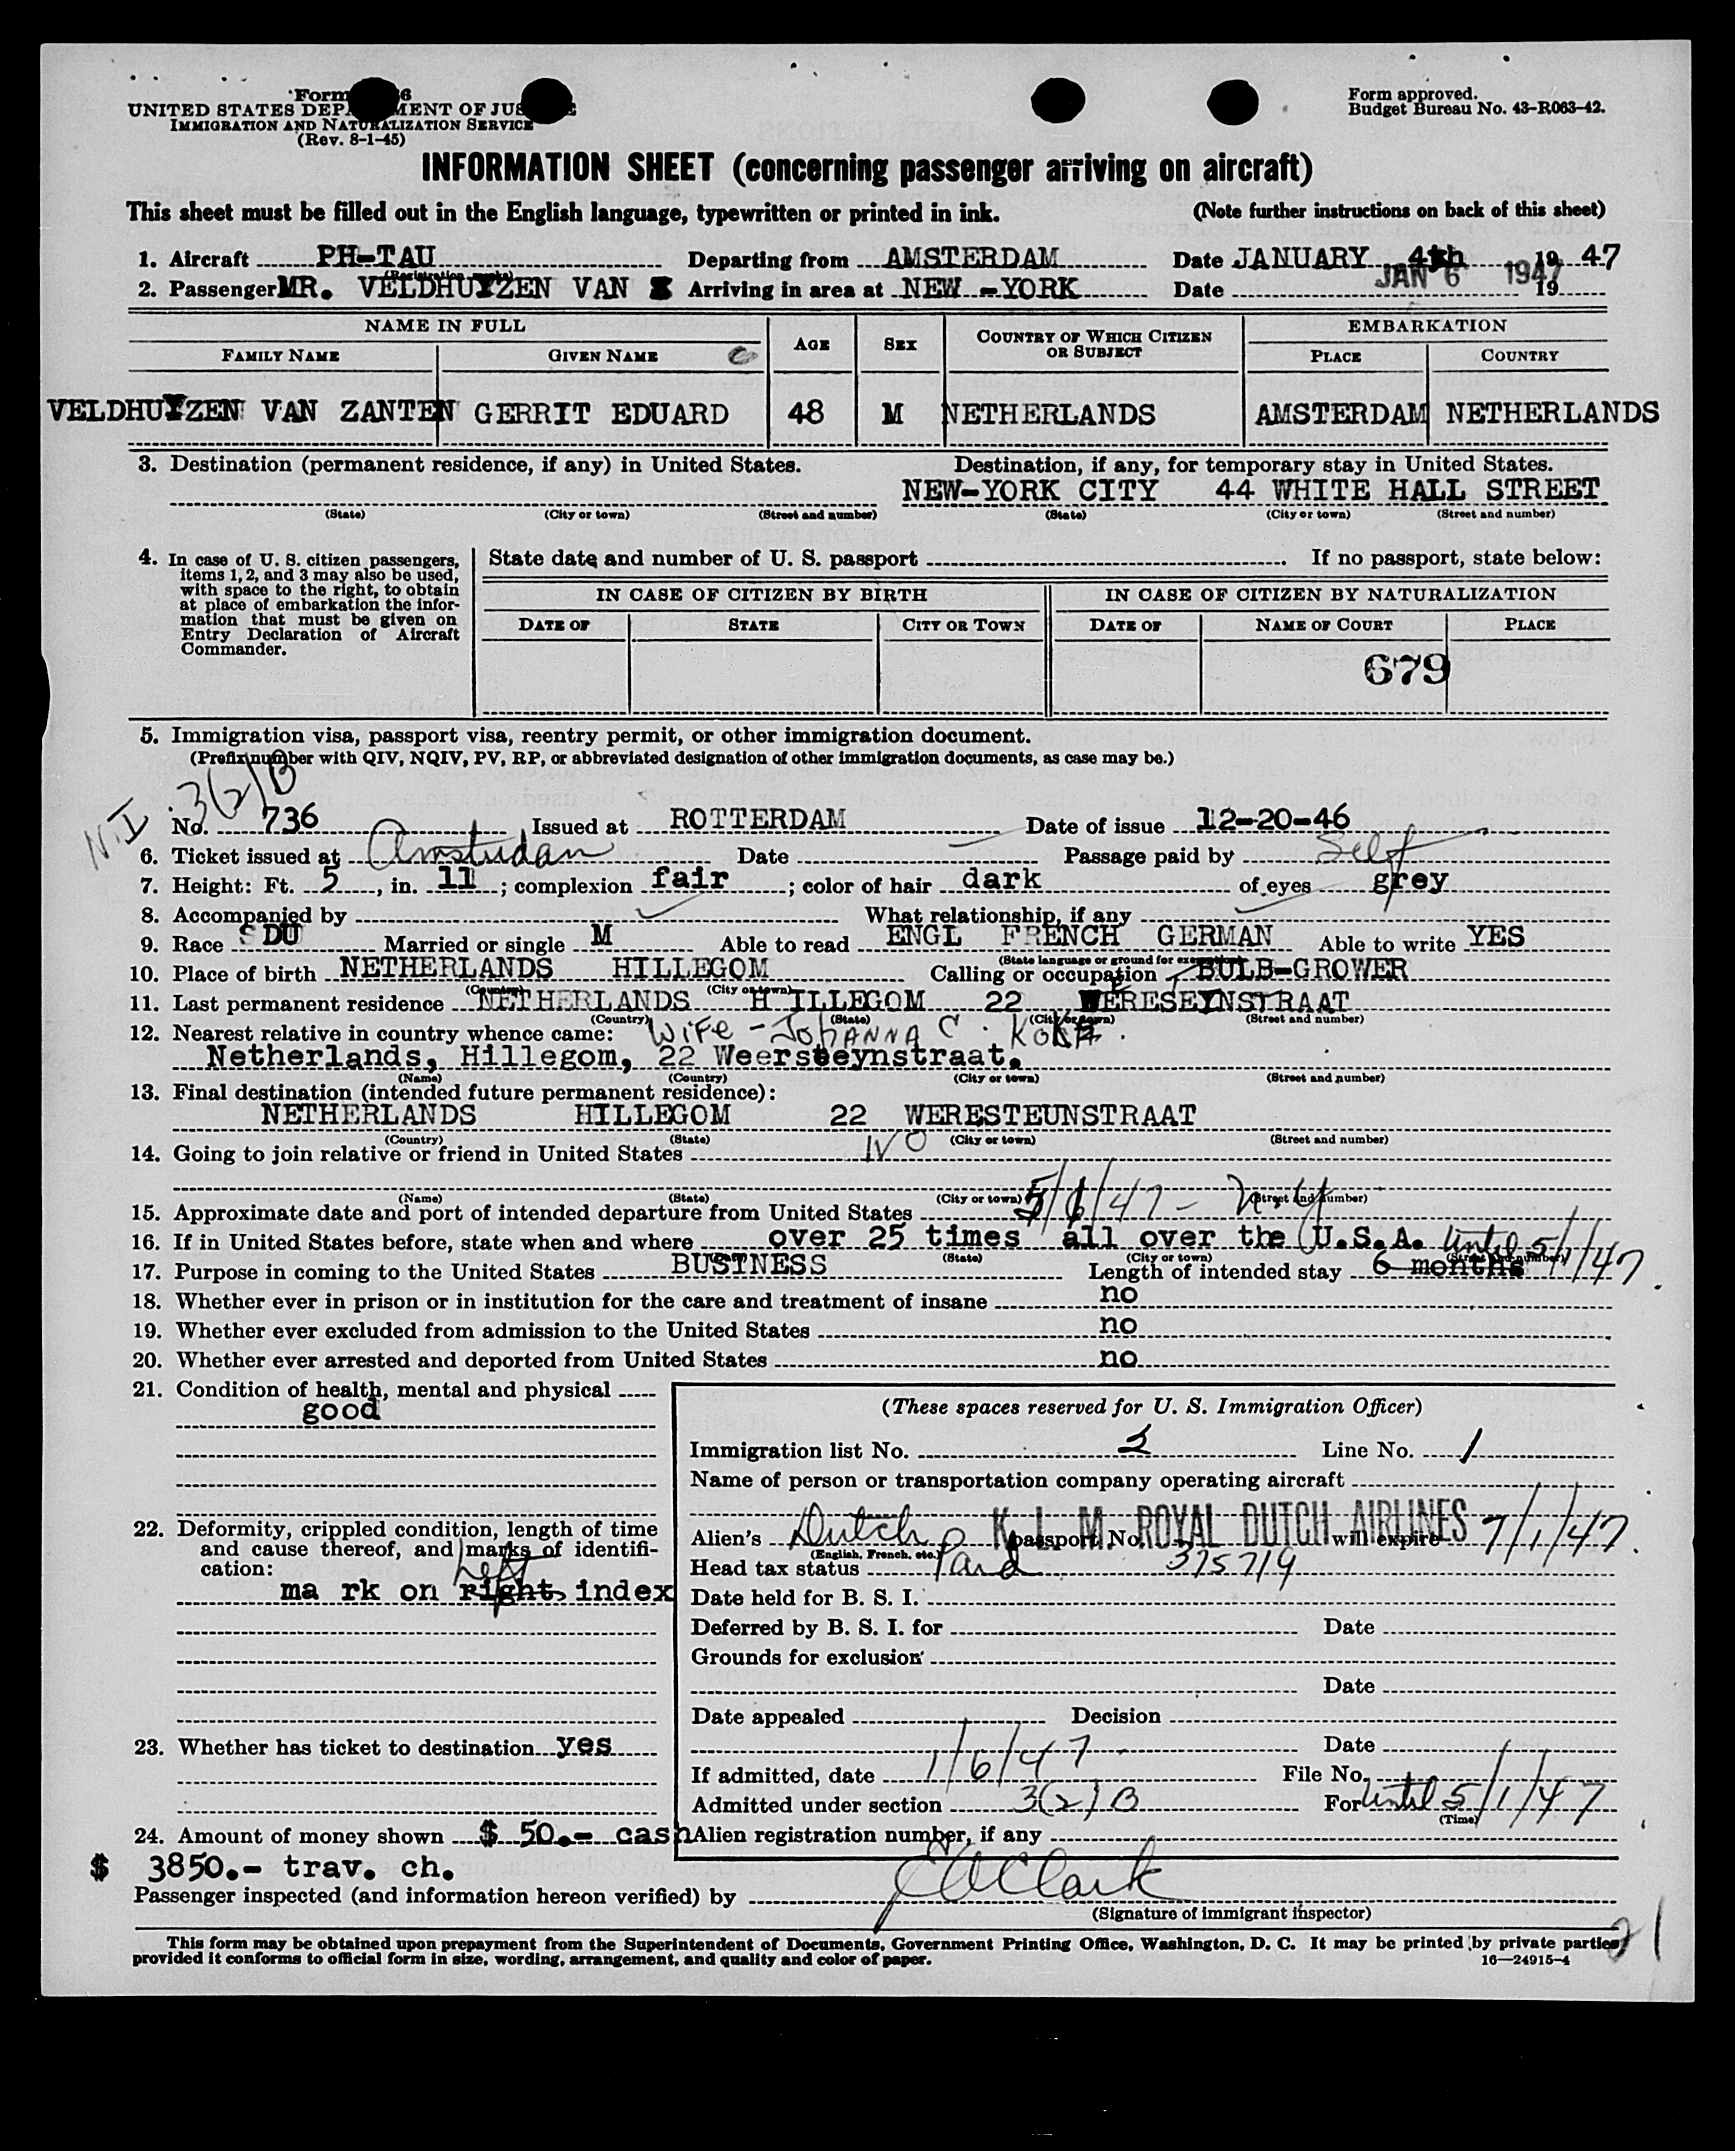 Form 6
UNITED STATES DEPARTMENT OF JUSTICE
IMMIGRATION AND NATURALIZATION SERVICE
(Rev. 8-1-45)
Form approved.
Budget Bureau No. 43-R063-42.
INFORMATION SHEET (concerning passenger arriving on aircraft)
This sheet must be filled out in the English language, typewritten or printed in ink. (Note further instructions on back of this sheet)
1. Aircraft PH-TAU Departing from AMSTERDAM Date JANUARY 4th 19 47
(Registration marks)
2. Passenger MR. VELDHUYZEN VAN Z Arriving in area at NEW -YORK Date JAN 6 1947 19
NAME IN FULL AGE SEX COUNTRY OF WHICH CITIZEN OR SUBJECT EMBARKATION
FAMILY NAME GIVEN NAME PLACE COUNTRY
VELDHUYZEN VAN ZANTEN GERRIT EDUARD 48 M NETHERLANDS AMSTERDAM NETHERLANDS
3. Destination (permanent residence, if any) in United States. Destination, if any, for temporary stay in United States.
NEW-YORK CITY 44 WHITE HALL STREET
(State) (City or town) (Street and number) (State) (City or town) (Street and number)
4. In case of U. S. citizen passengers, items 1, 2, and 3 may also be used, with space to the right, to obtain at place of embarkation the information that must be given on Entry Declaration of Aircraft Commander.
State date and number of U. S. passport If no passport, state below:
IN CASE OF CITIZEN BY BIRTH IN CASE OF CITIZEN BY NATURALIZATION
DATE OF STATE CITY OR TOWN DATE OF NAME OF COURT PLACE
679
5. Immigration visa, passport visa, reentry permit, or other immigration document.
(Prefix number with QIV, NQIV, PV, RP, or abbreviated designation of other immigration documents, as case may be.)
N.I. 3(2)B
No. 736 Issued at ROTTERDAM Date of issue 12-20-46
6. Ticket issued at Amsterdam Date Passage paid by Self
7. Height: Ft. 5, in. 11; complexion fair; color of hair dark of eyes grey
8. Accompanied by What relationship, if any
9. Race DU Married or single M Able to read ENGL FRENCH GERMAN Able to write YES
(State language or ground for exemption)
10. Place of birth NETHERLANDS HILLEGOM Calling or occupation BULB-GROWER
(Country) (City or town)
11. Last permanent residence NETHERLANDS HILLEGOM 22 WERESEYNSTRAAT
(Country) (State) (City or town) (Street and number)
12. Nearest relative in country whence came: WIFE - JOHANNA C.
Netherlands, Hillegom, 22 Weersteynstraat.
(Name) (Country) (City or town) (Street and number)
13. Final destination (intended future permanent residence):
NETHERLANDS HILLEGOM 22 WERESTEUNSTRAAT
(Country) (State) (City or town) (Street and number)
14. Going to join relative or friend in United States NO
(Name) (State) (City or town) (Street and number)
15. Approximate date and port of intended departure from United States 5/1/47 - N.Y.
16. If in United States before, state when and where over 25 times all over the U.S.A.
(Date) (State) (City or town) (Street and number)
17. Purpose in coming to the United States BUSINESS Length of intended stay 6 months Until 5/1/47.
18. Whether ever in prison or in institution for the care and treatment of insane no
19. Whether ever excluded from admission to the United States no
20. Whether ever arrested and deported from United States no
21. Condition of health, mental and physical
good
22. Deformity, crippled condition, length of time and cause thereof, and marks of identification:
left
ma rk on right index
23. Whether has ticket to destination yes
24. Amount of money shown $ 50.- cash
$ 3850.- trav. ch.
(These spaces reserved for U. S. Immigration Officer)
Immigration list No. 2 Line No. 1
Name of person or transportation company operating aircraft
K. L. M. ROYAL DUTCH AIRLINES
Alien's Dutch passport No. 375719 will expire 7/1/47.
(English, French, etc.)
Head tax status Paid
Date held for B. S. I.
Deferred by B. S. I. for Date
Grounds for exclusion
Date
Date appealed Decision
Date
If admitted, date 1/6/47 File No.
Admitted under section 3(2)B For Until 5/1/47
(Time)
Alien registration number, if any
Passenger inspected (and information hereon verified) by Clark
(Signature of immigrant inspector)
21
This form may be obtained upon prepayment from the Superintendent of Documents, Government Printing Office, Washington, D. C. It may be printed by private parties
provided it conforms to official form in size, wording, arrangement, and quality and color of paper. 16—24915-4